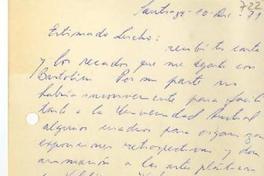 722
Santiago - 10 Dic. 71
Estimado Lucho:
recibí tu carta
y los recados que me dejaste con
Bartolini. Por mi parte no
habría inconveniente para facili
tarle a la Universidad Austral
algunos cuadros para organizar
exposiciones retrospectivas y dar
animación a las artes plásticas